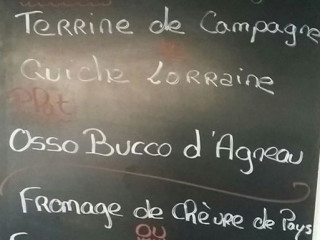 Terrine de Campagne
Quiche Lorraine
Plat
Osso Bucco d'Agneau
Fromage de Chèvre de Pays
ou